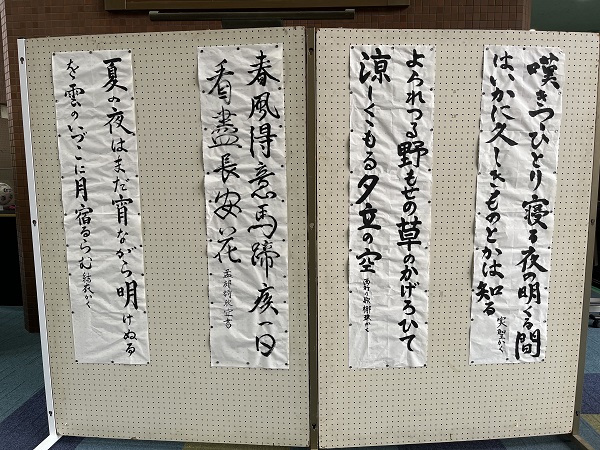 嘆きつゝひとり寝る夜の明くる間
はいかに久しきものとかは知る
実聖かく
よられつる野もせの草のかげろひて
涼しくくもる夕立の空
かく
春風得意馬蹄疾一日
看盡長安花
書
夏の夜はまだ宵ながら明けぬる
を雲のいづこに月宿るらむ
結衣かく